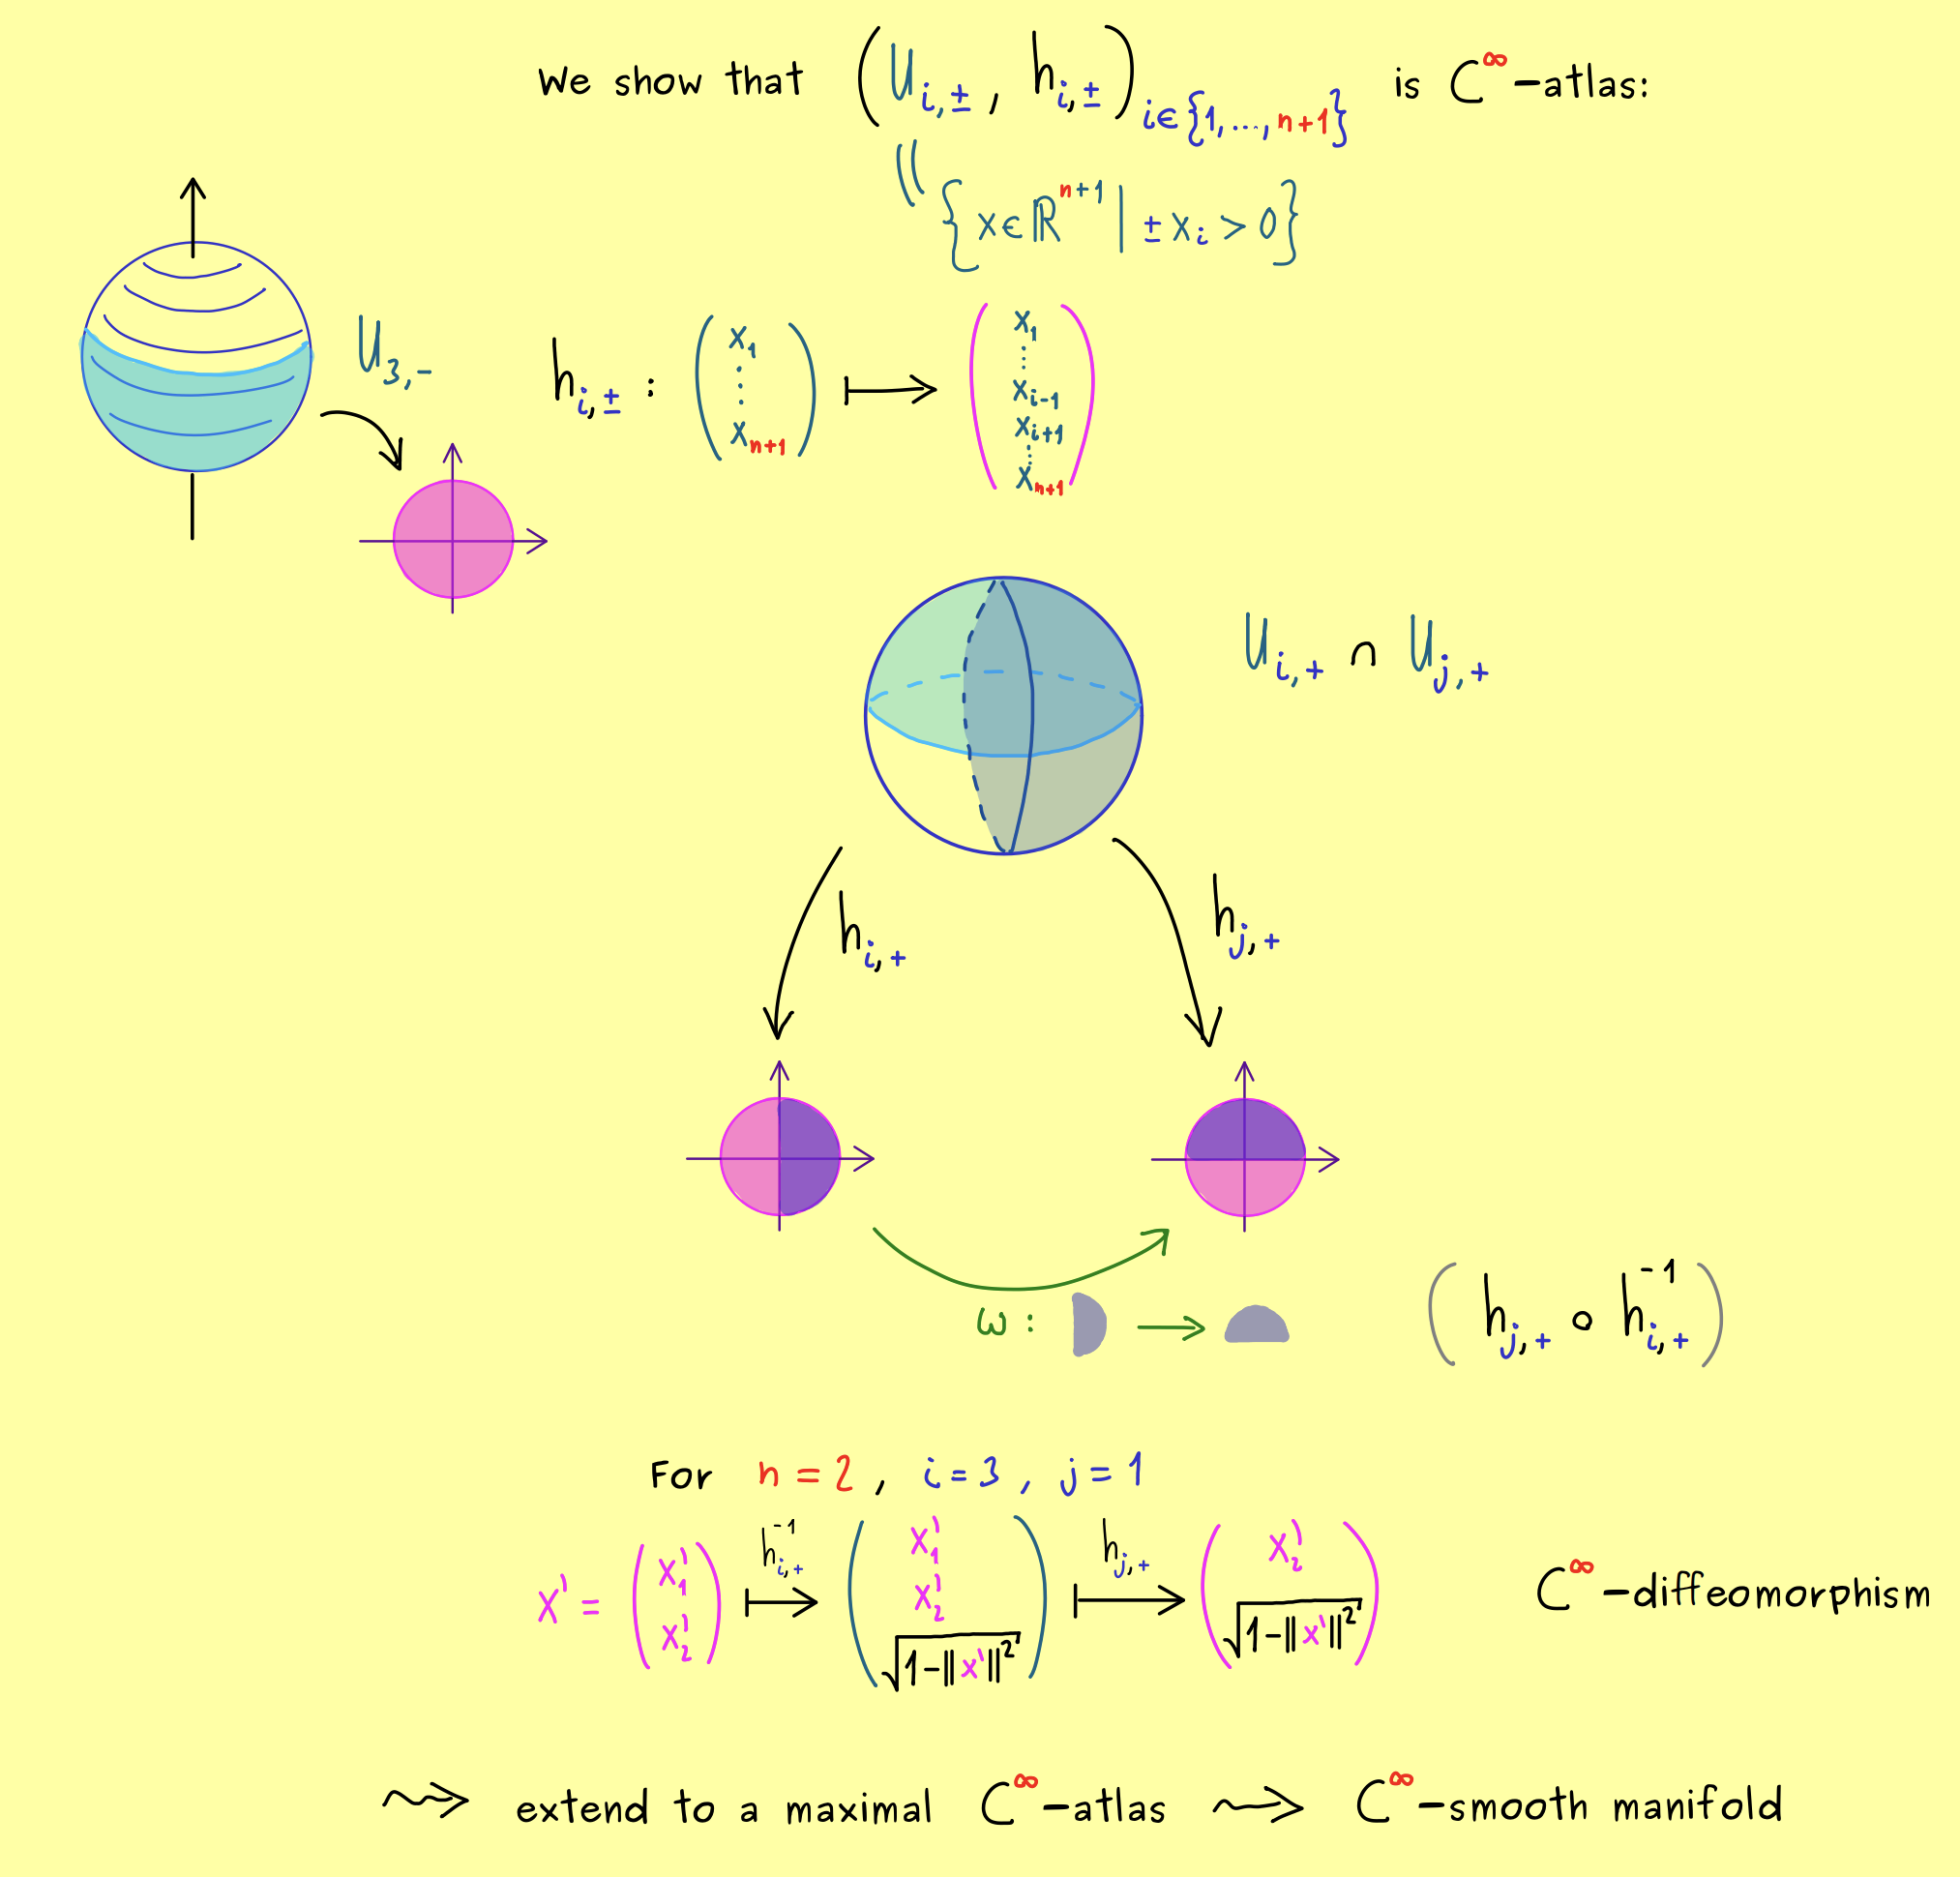 We show that (U_{i,±}, h_{i,±})_{i∈{1,...,n+1}} is C^∞-atlas:
{x∈ℝ^{n+1} | ±x_i > 0}
U_{3,-}
h_{i,±} : (x_1 ⋮ x_{n+1}) ↦ (x_1 ⋮ x_{i-1} x_{i+1} ⋮ x_{n+1})
U_{i,+} ∩ U_{j,+}
h_{i,+} h_{j,+}
ω : → (h_{j,+} ∘ h_{i,+}^{-1})
For n = 2, i = 3, j = 1
x' = (x'_1 x'_2) ↦^{h_{i,+}^{-1}} (x'_1 x'_2 √(1-||x'||²)) ↦^{h_{j,+}} (x'_2 √(1-||x'||²)) C^∞-diffeomorphism
⇝ extend to a maximal C^∞-atlas ⇝ C^∞-smooth manifold